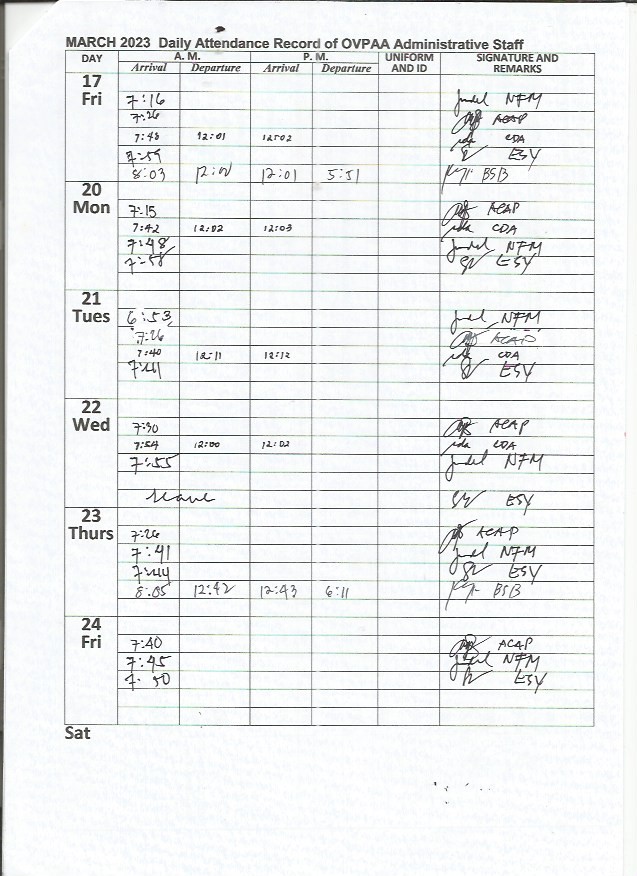 MARCH 2023 Daily Attendance Record of OVPAA Administrative Staff
DAY A. M. P. M. UNIFORM AND ID SIGNATURE AND REMARKS
Arrival Departure Arrival Departure
17 Fri
7:16 NFM
7:26 ACAP
7:48 12:01 12:02 CDA
7:59 ESY
8:03 12:01 5:51 BSB
20 Mon
7:15 ACAP
7:42 12:02 12:03 CDA
7:48 NFM
7:58 ESY
21 Tues
6:53 NFM
7:26 ACAP
7:40 12:11 12:12 CDA
7:44 ESY
22 Wed
7:30 ACAP
7:54 12:00 12:02 CDA
7:55 NFM
leave ESY
23 Thurs
7:26 ACAP
7:41 NFM
7:44 ESY
8:05 12:42 12:43 6:11 BSB
24 Fri
7:40 ACAP
7:45 NFM
7:50 ESY
Sat